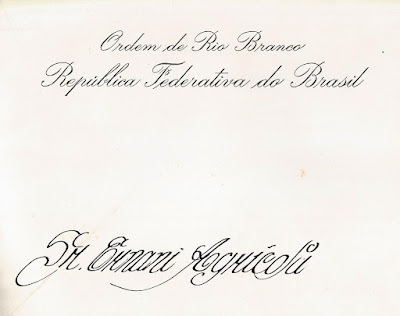 Ordem de Rio Branco
República Federativa do Brasil
Sr. Ernani Agrícola